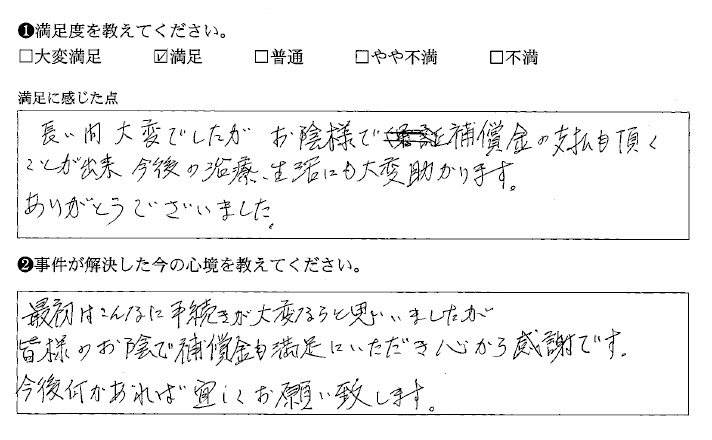 ❶満足度を教えてください。
□大変満足 ☑満足 □普通 □やや不満 □不満
満足に感じた点
長い間 大変でしたが お陰様で補償金の支払も頂く
ことが出来 今後の治療、生活にも大変助かります。
ありがとうございました。
❷事件が解決した今の心境を教えてください。
最初はこんなに手続きが大変なろと思いいましたが
皆様のお陰で補償金も満足にいただき心から感謝です。
今後何かあれば宜しくお願い致します。